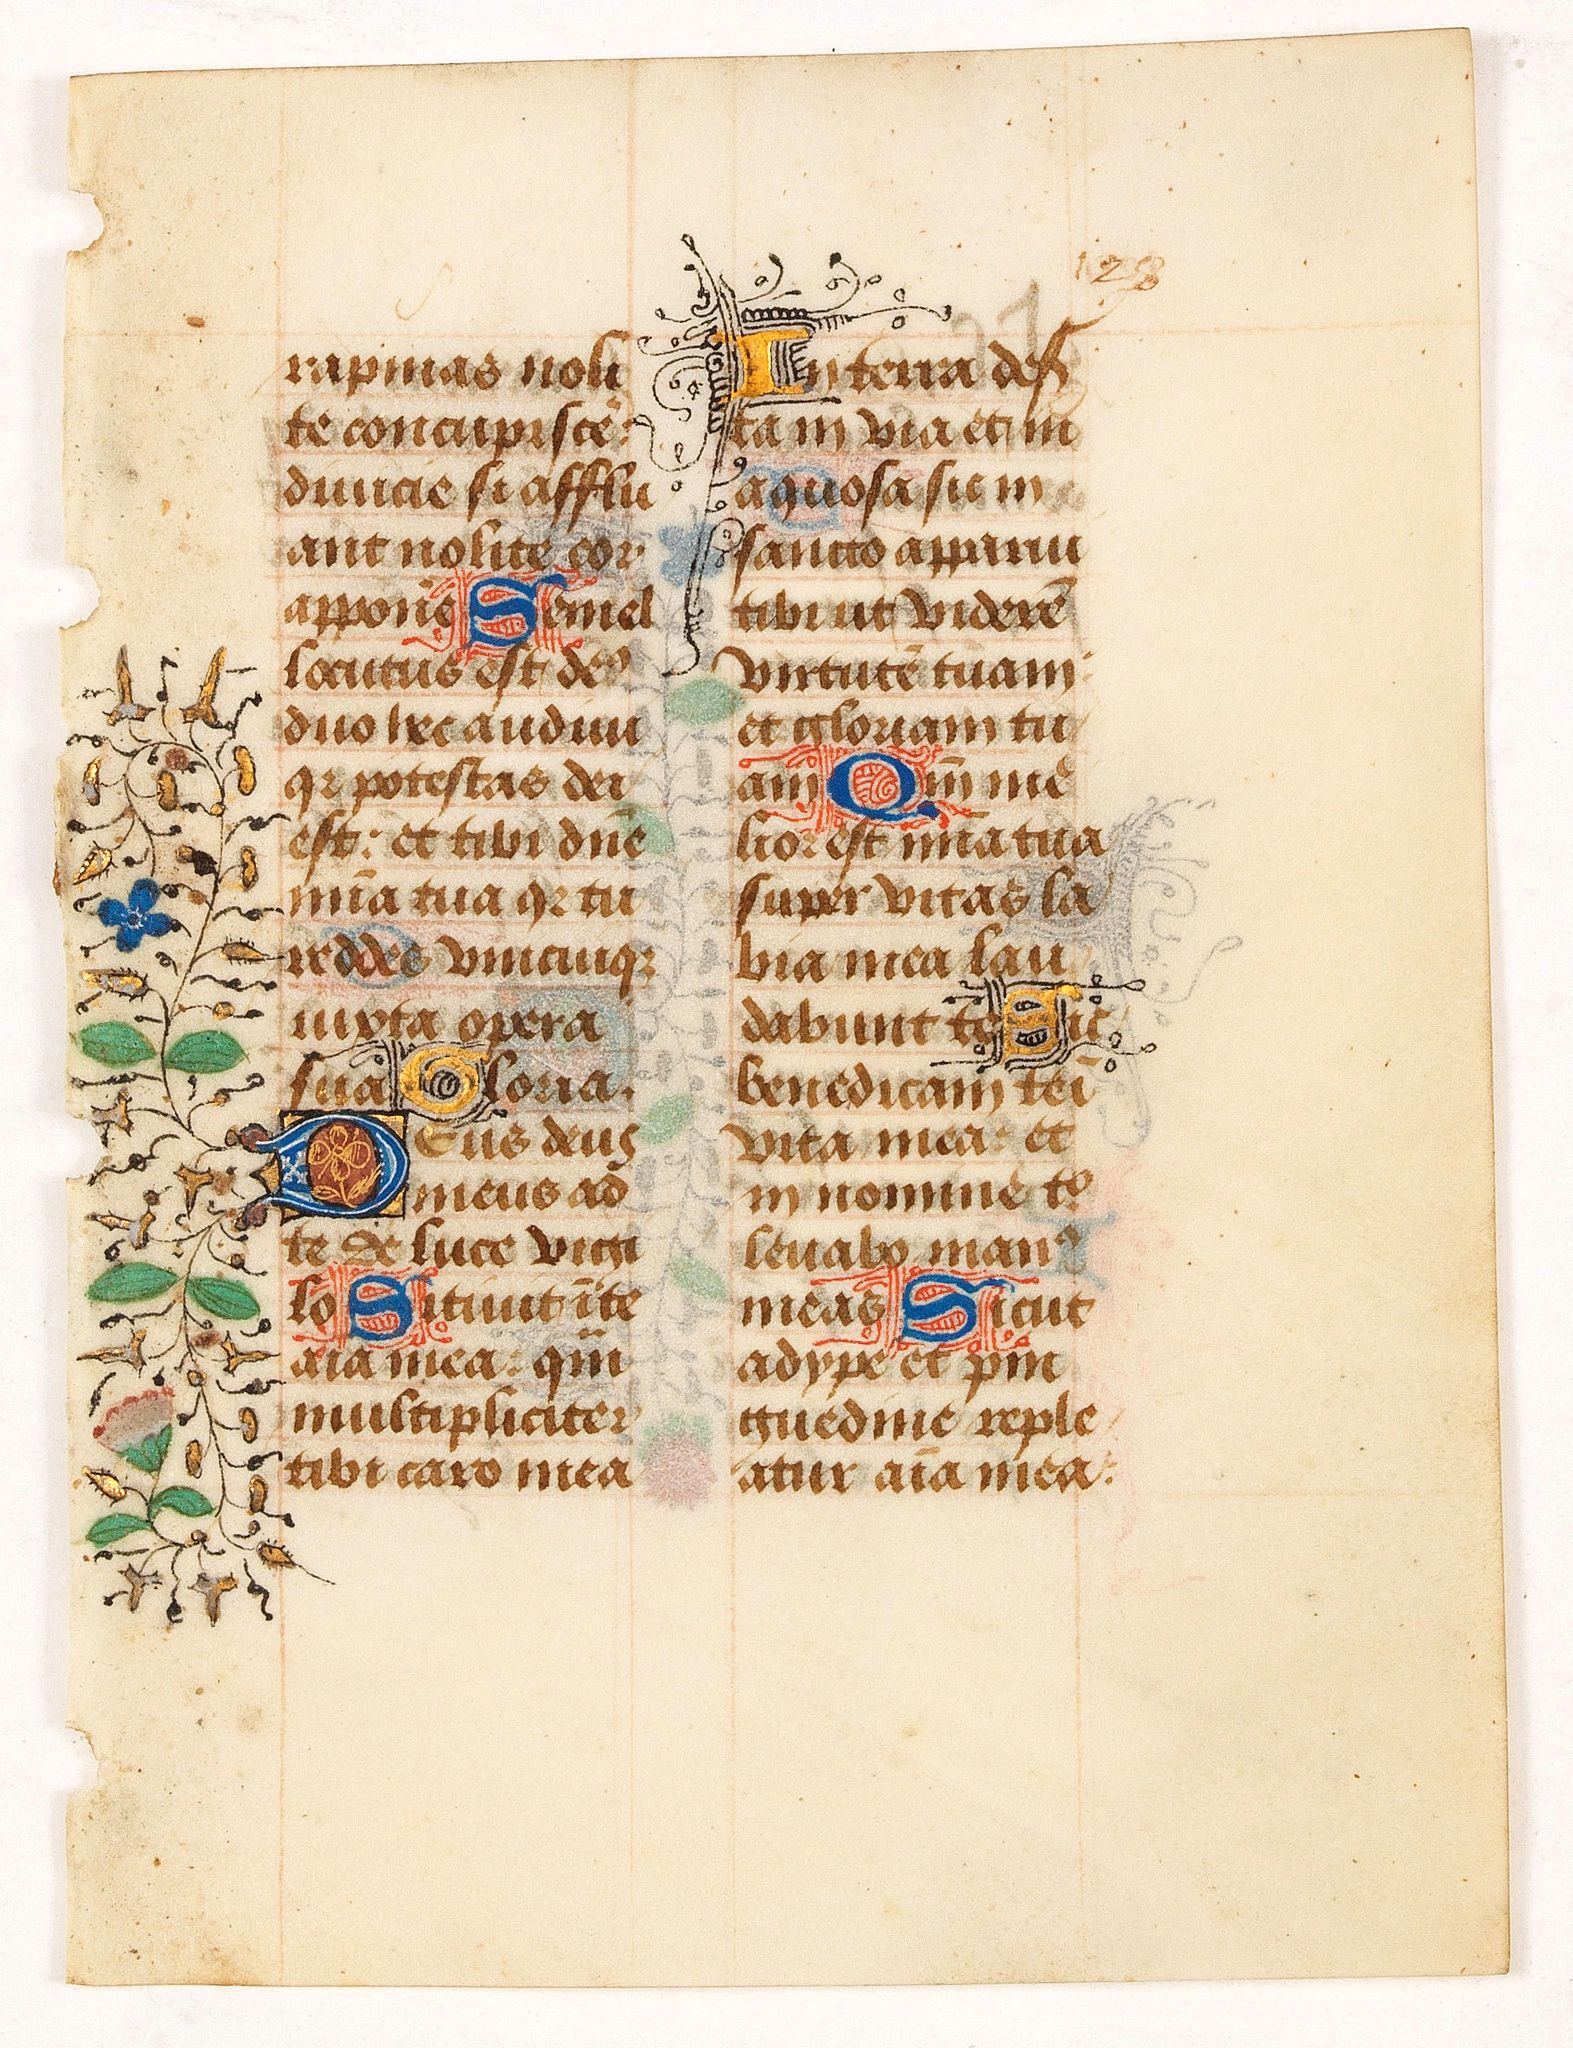 rapinas noli
te concupiscē:
diuicie si afflu
ant nolite cor
apponē Semel
locutus est deꝰ
duo hec audiui
qr potestas dei
est: et tibi dn̄e
mīa tua qr tu
reddes vnicuiqz
iuxta opera
sua Gloria.
Deus deus
meus ad
te de luce vigi
lo Sitiuit ī te
aīa mea: qm̄
multipliciter
tibi caro mea
In terra deſ
ta in via et in
aquosa sic in
sancto apparui
tibi ut viderē
virtutē tuam:
et gloriam tu
am Qm̄ me
lior est mīa tua
super vitas la
bia mea lau
dabunt te Sic
benedicam te ī
vita mea: et
in nomine tꝰ
leuabo manꝰ
meas Sicut
adype et pin
guedine reple
atur aīa mea: